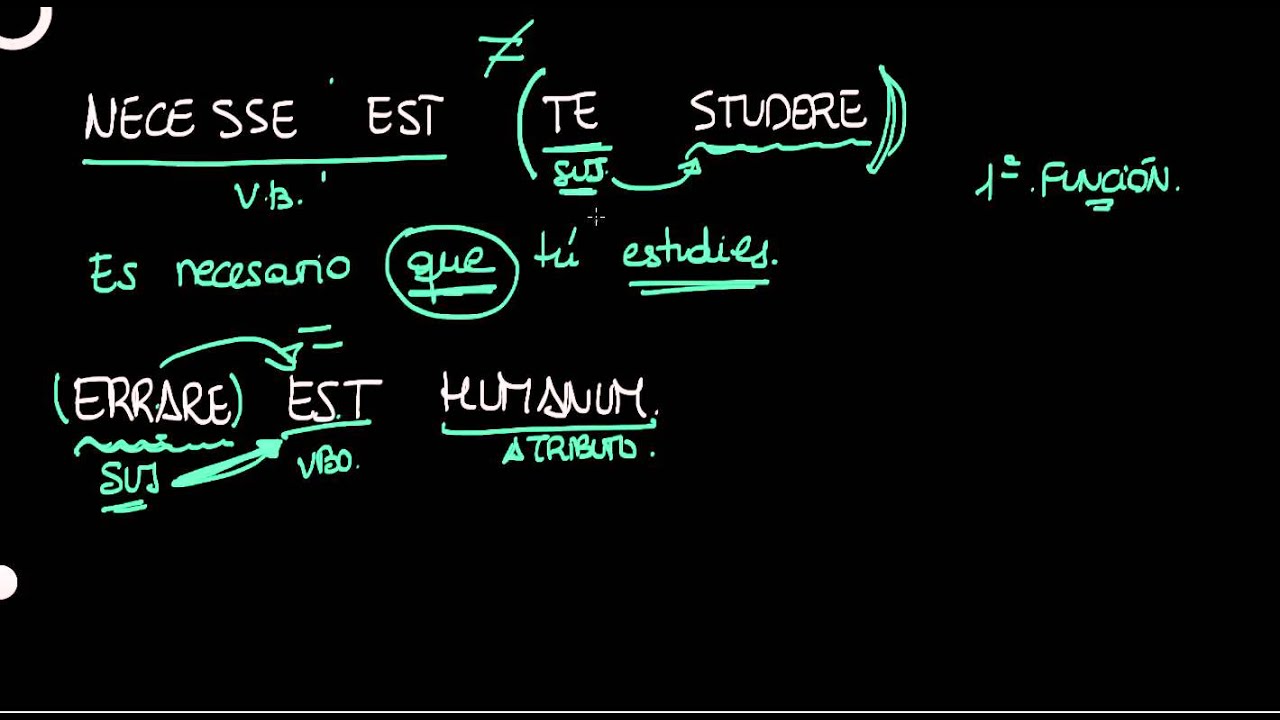 ≠
NECESSE EST (TE STUDERE)
V.B. SUJ. 1ª FUNCIÓN.
Es necesario que tú estudies.
=
(ERRARE) EST HUMANUM.
SUJ VBO. ATRIBUTO.